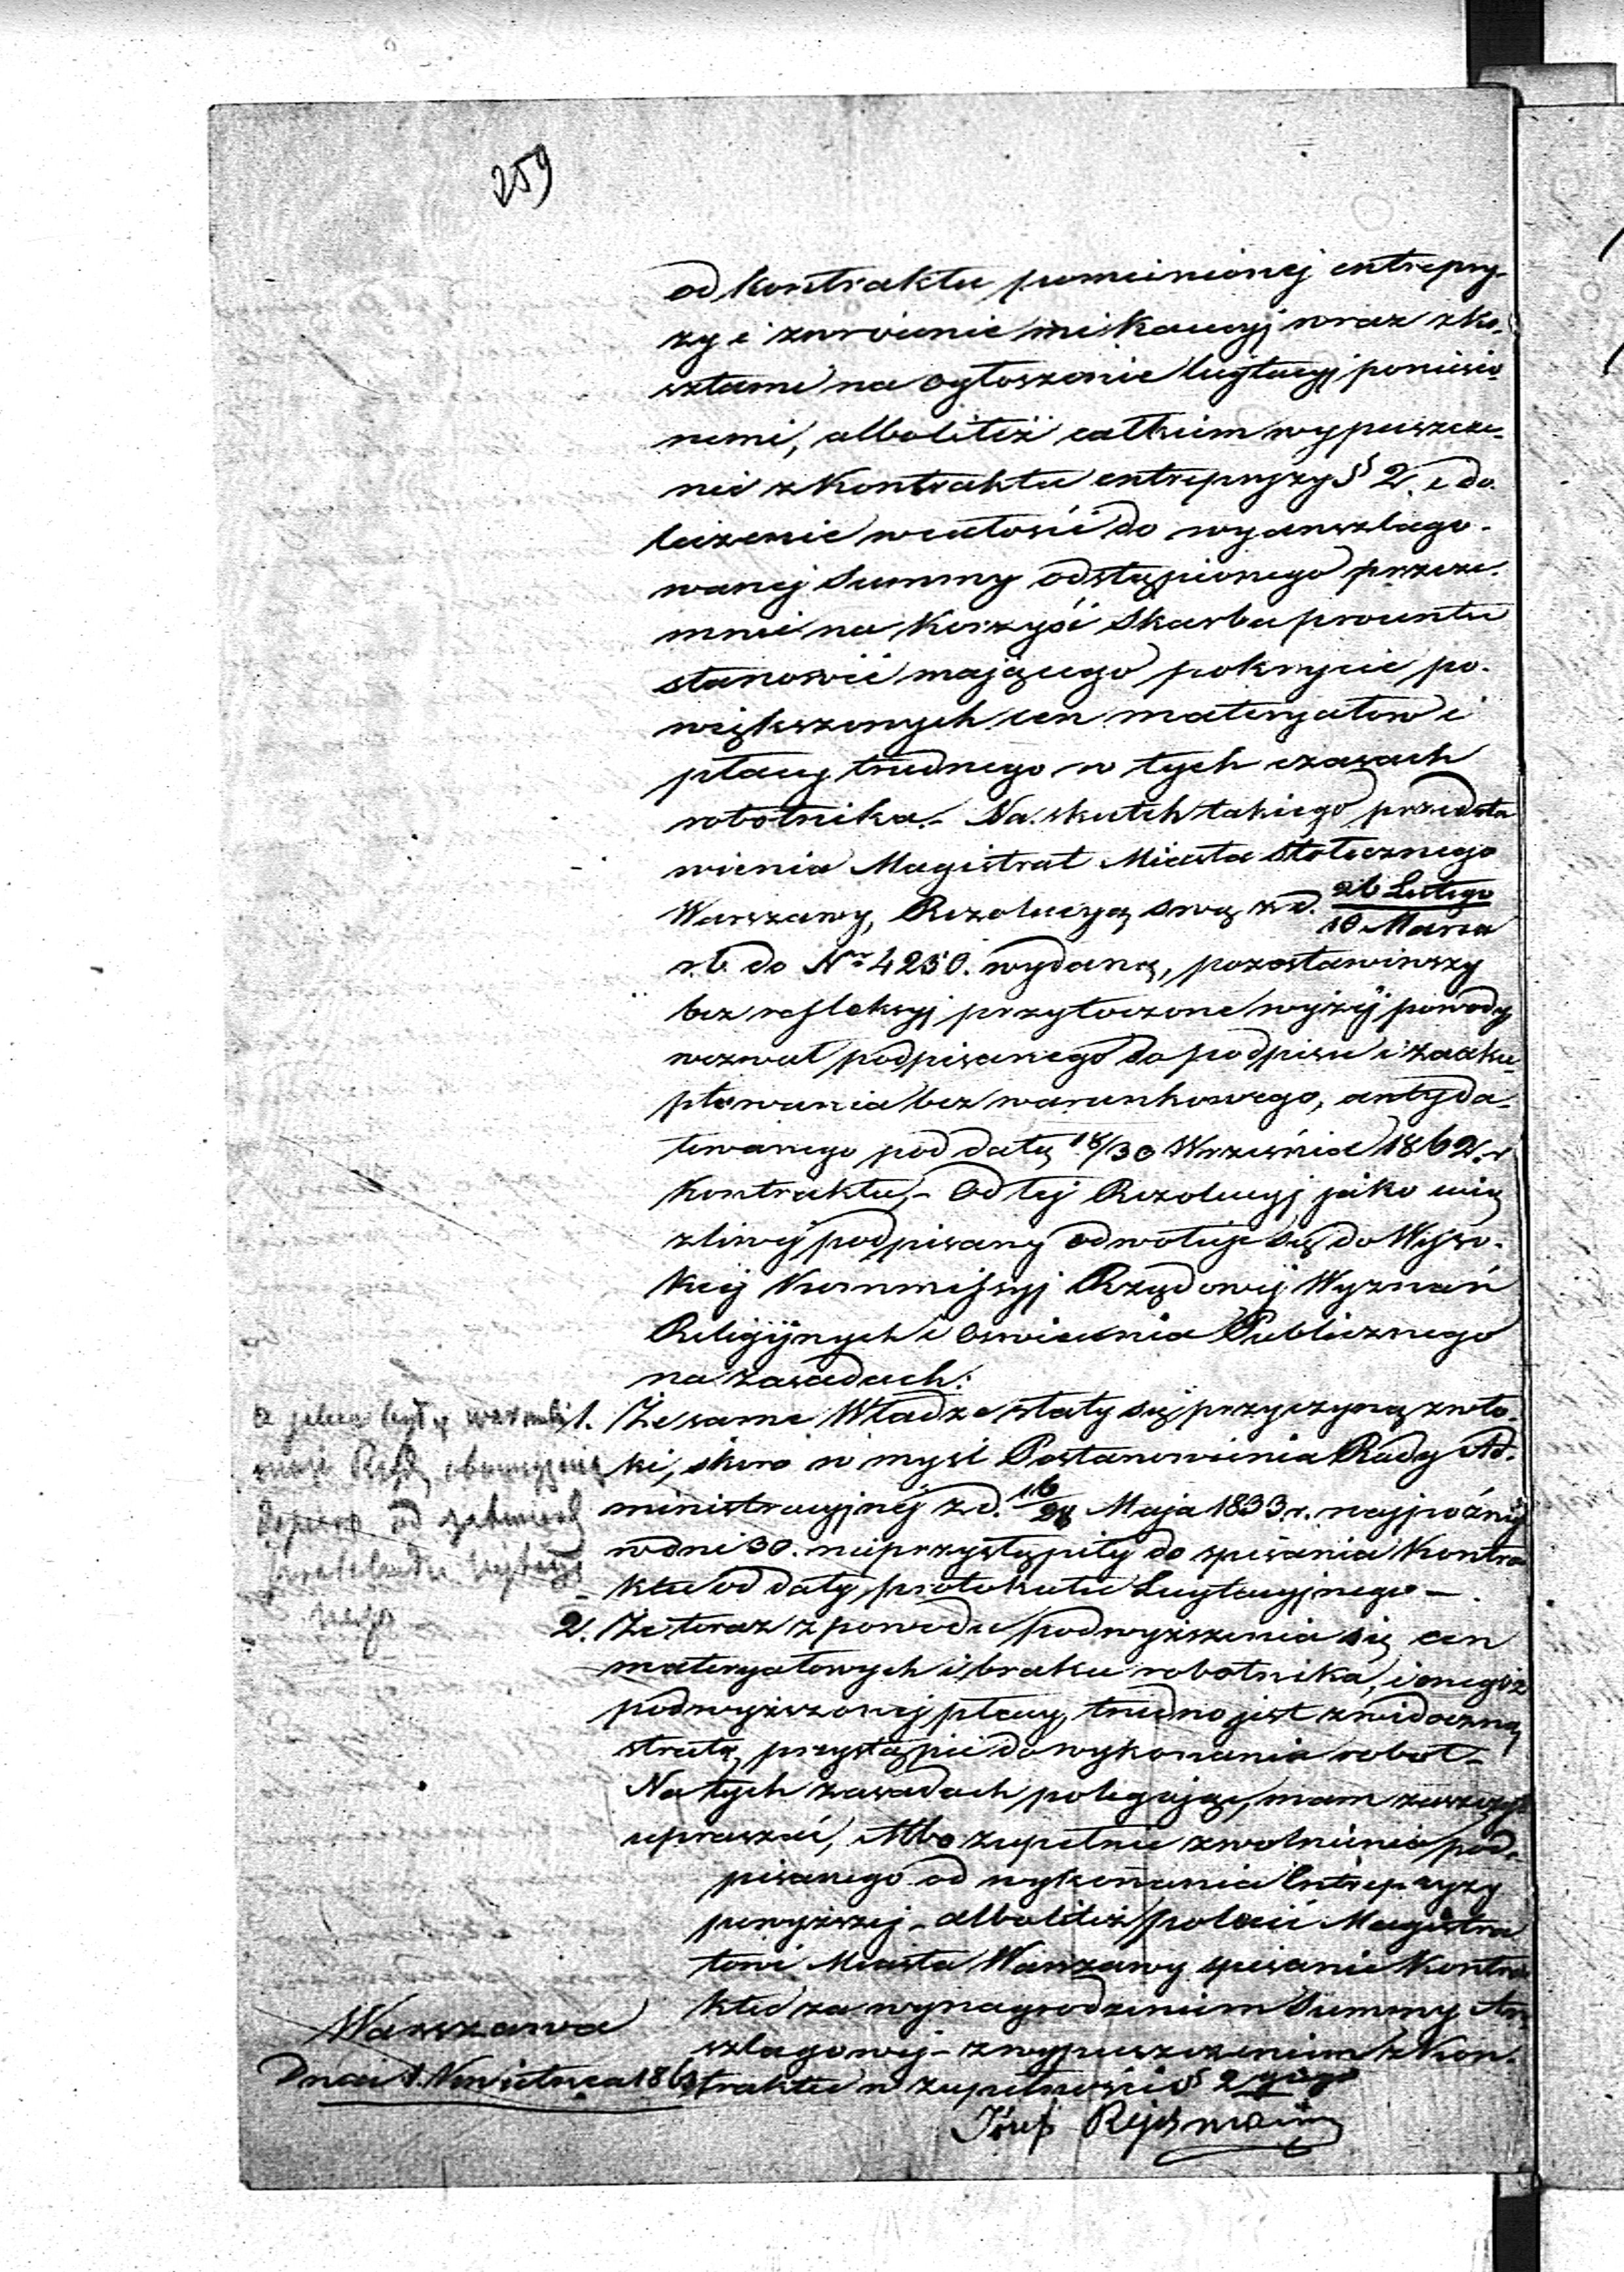 259
od kontraktu pomienionej entrepry-
zy i zwrócenie mi Kaucyj wraz z ko-
sztami na ogłoszenie licytacyj poniesio-
nemi, albolitéż całkiem wypuszcze-
nie z Kontraktu entrepryzy § 2. i do-
liczenie w całości do wyanszlago-
wanej Summy odstąpionego przeze-
mnie na Korzyść Skarbu procentu
stanowić mającego pokrycie po-
większonych cen materyałow i
płacy trudnego w tych czasach
robotnika.- Na skutek takiego przedsta
wienia Magistrat Miasta Stołecznego
Warszawy, Rezolucyą swą z d. 26 Lutego
10 Marca
r.b. do Nr 4250. wydaną, pozostawiwszy
bez refleksyj przytoczone wyżéj powody
wezwał podpisanego do podpisu i zaakce-
ptowania bezwarunkowego, antyda-
towanego pod datą 18/30 Września 1862 r
Kontraktu,- Od tej Rezolucyj jako
podpisany odwołuje się do Wyso-
kiej Kommissyj Rządowej Wyznań
Religijnych i Oswiecenia Publicznego
na zasadach:
1. Że same Władze stały się przyczyną zwło-
ki, skoro w myśl Postanowienia Rady Ad-
ministracyjnéj z d. 16/28 Maja 1833 r. najpóźniéj
w dni 30. nieprzystąpiły do spisania Kontra
ktu od daty protokułu Licytacyjnego -
a
Rządu
dopiero od
2. Że teraz z powodu podwyższenia się cen
materyałowych i braku robotnika, i onegoż
podwyższonej płacy, trudno jest z widoczną
stratą przystąpić do wykonania robot -
Na tych zasadach polegając, mam zaszczyt
upraszać, Albo zupełne zwolnienie pod-
pisanego od wykonania Entrepryzy
powyższej - albolitéż polecić Magistra
towi Miasta Warszawy spisanie Kontra
ktu za wynagrodzeniem Summy An-
szlagowej - z wypuszczeniem z Kon-
traktu w zupełności § 2
Warszawa
Dnia 1. Kwietnia 186
Józef Rejchman